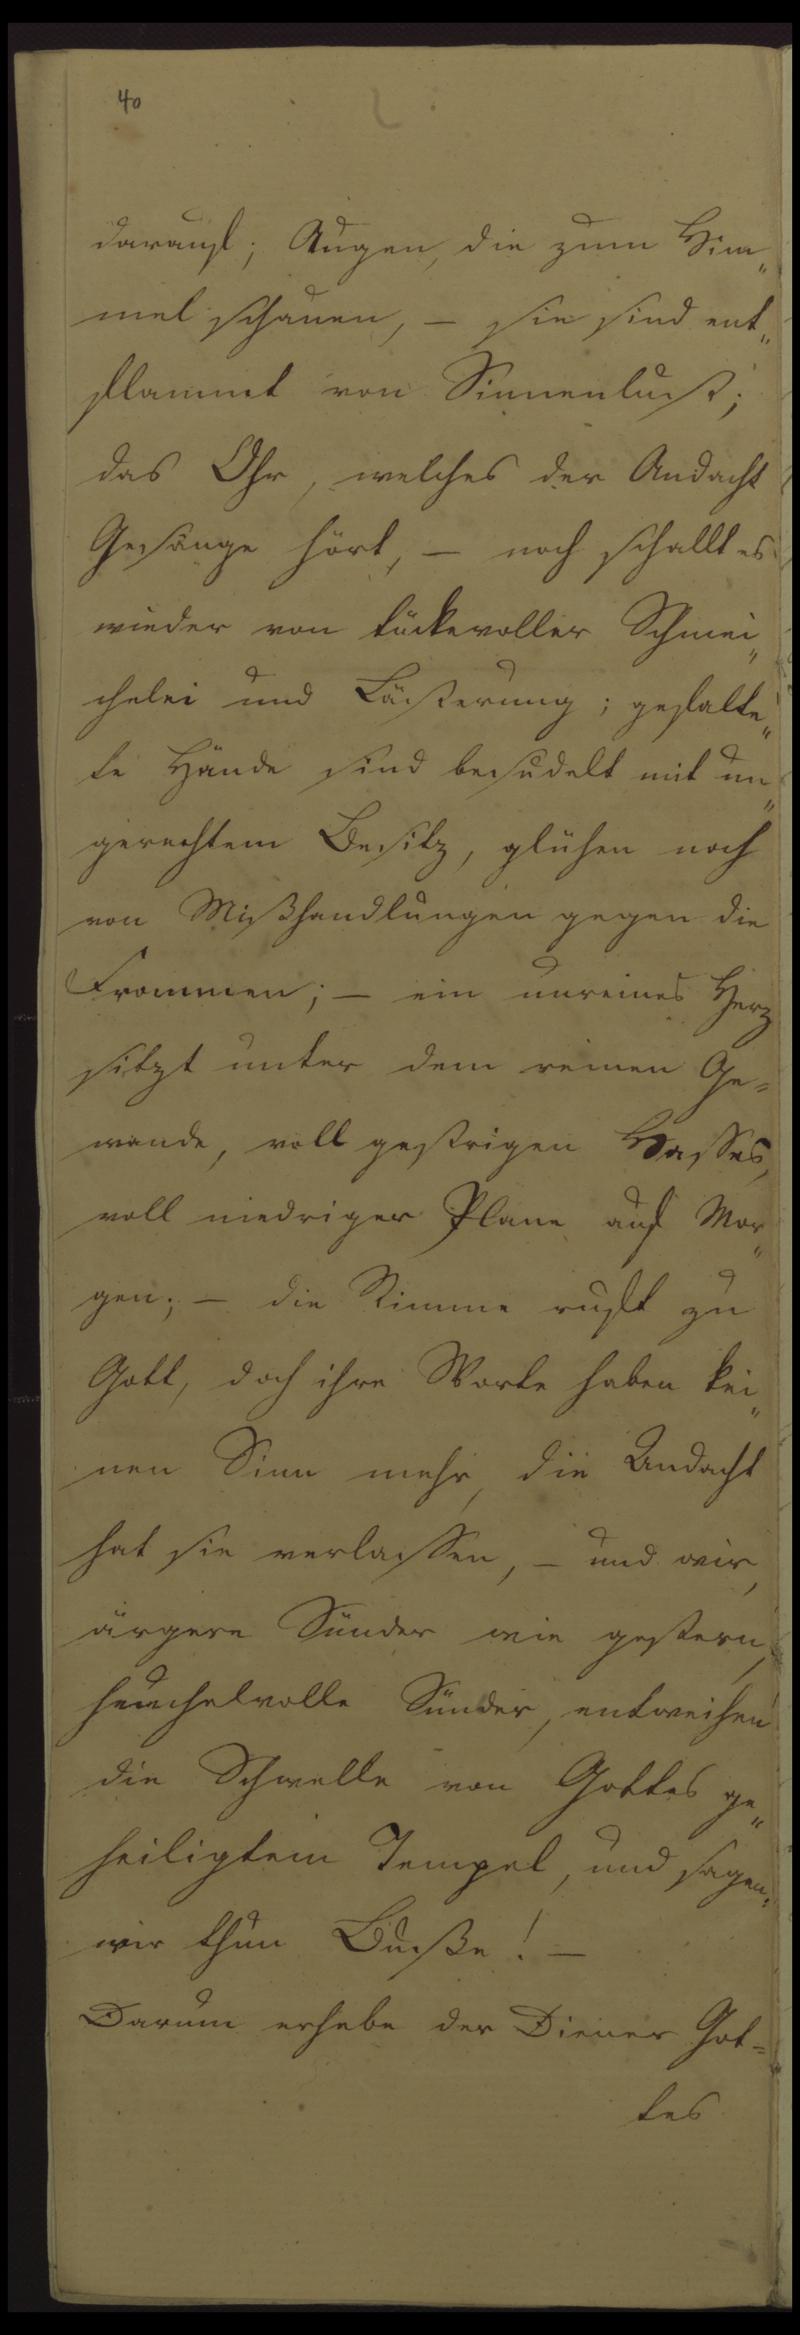 40
darauf; Augen, die zum Him„
mel schauen, – sie sind ent„
flammt von Sinnenlust;
das Ohr, welches der Andacht
Gesänge hört, – noch schallt es
wieder von tückevoller Schmei„
chelei und Lästerung; gefalte„
te Hände sind besudelt mit un„
gerechtem Besitz, glühen noch
von Mißhandlungen gegen die
Frommen; – ein unreines Herz
sitzt unter dem reinen Ge=
wande, voll gestrigen Hasses,
voll niedriger Plane auf Mor„
gen; – die Stimme ruft zu
Gott, doch ihre Worte haben kei„
nen Sinn mehr, die Andacht
hat sie verlassen, – und wir,
ärgere Sünder wie gestern,
heuchelvolle Sünder, entweihen
die Schwelle von Gottes ge„
heiligtem Tempel, und sagen:
wir thun Buße! –
Darum erhebe der Diener Got=
tes